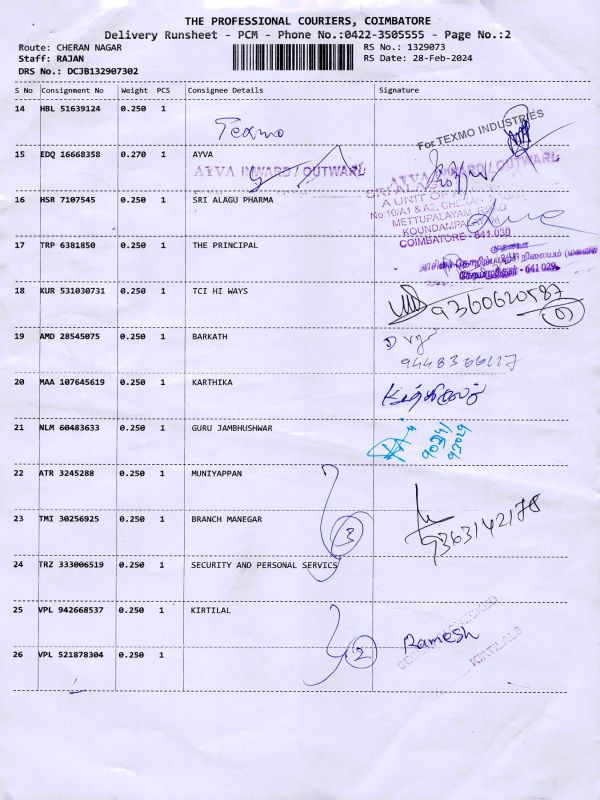 THE PROFESSIONAL COURIERS, COIMBATORE
Delivery Runsheet - PCM - Phone No.:0422-3505555 - Page No.:2
Route: CHERAN NAGAR RS No.: 1329073
Staff: RAJAN RS Date: 28-Feb-2024
DRS No.: DCJB132907302
S No Consignment No Weight PCS Consignee Details Signature
14 HBL 51639124 0.250 1 Texmo
For TEXMO INDUSTRIES
15 EDQ 16668358 0.270 1 AYVA
AYVA INWARD / OUTWARD AYVA INWARD / OUTWARD
16 HSR 7107545 0.250 1 SRI ALAGU PHARMA
SRI ALAG
A UNIT OF
No.10/A1 & A2, CHERAN
METTUPALAYAM ROAD
KOUNDAMPALAYAM
COIMBATORE - 641 030
17 TRP 6381850 0.250 1 THE PRINCIPAL
641 029
18 KUR 531030731 0.250 1 TCI HI WAYS
9360620587
19 AMD 28545075 0.250 1 BARKATH
20 MAA 107645619 0.250 1 KARTHIKA
21 NLM 60483633 0.250 1 GURU JAMBHUSHWAR
22 ATR 3245288 0.250 1 MUNIYAPPAN
23 TMI 30256925 0.250 1 BRANCH MANEGAR
3
9363142178
24 TRZ 333006519 0.250 1 SECURITY AND PERSONAL SERVICS
25 VPL 942668537 0.250 1 KIRTILAL
Ramesh
2
KIRTILALS
26 VPL 521878304 0.250 1